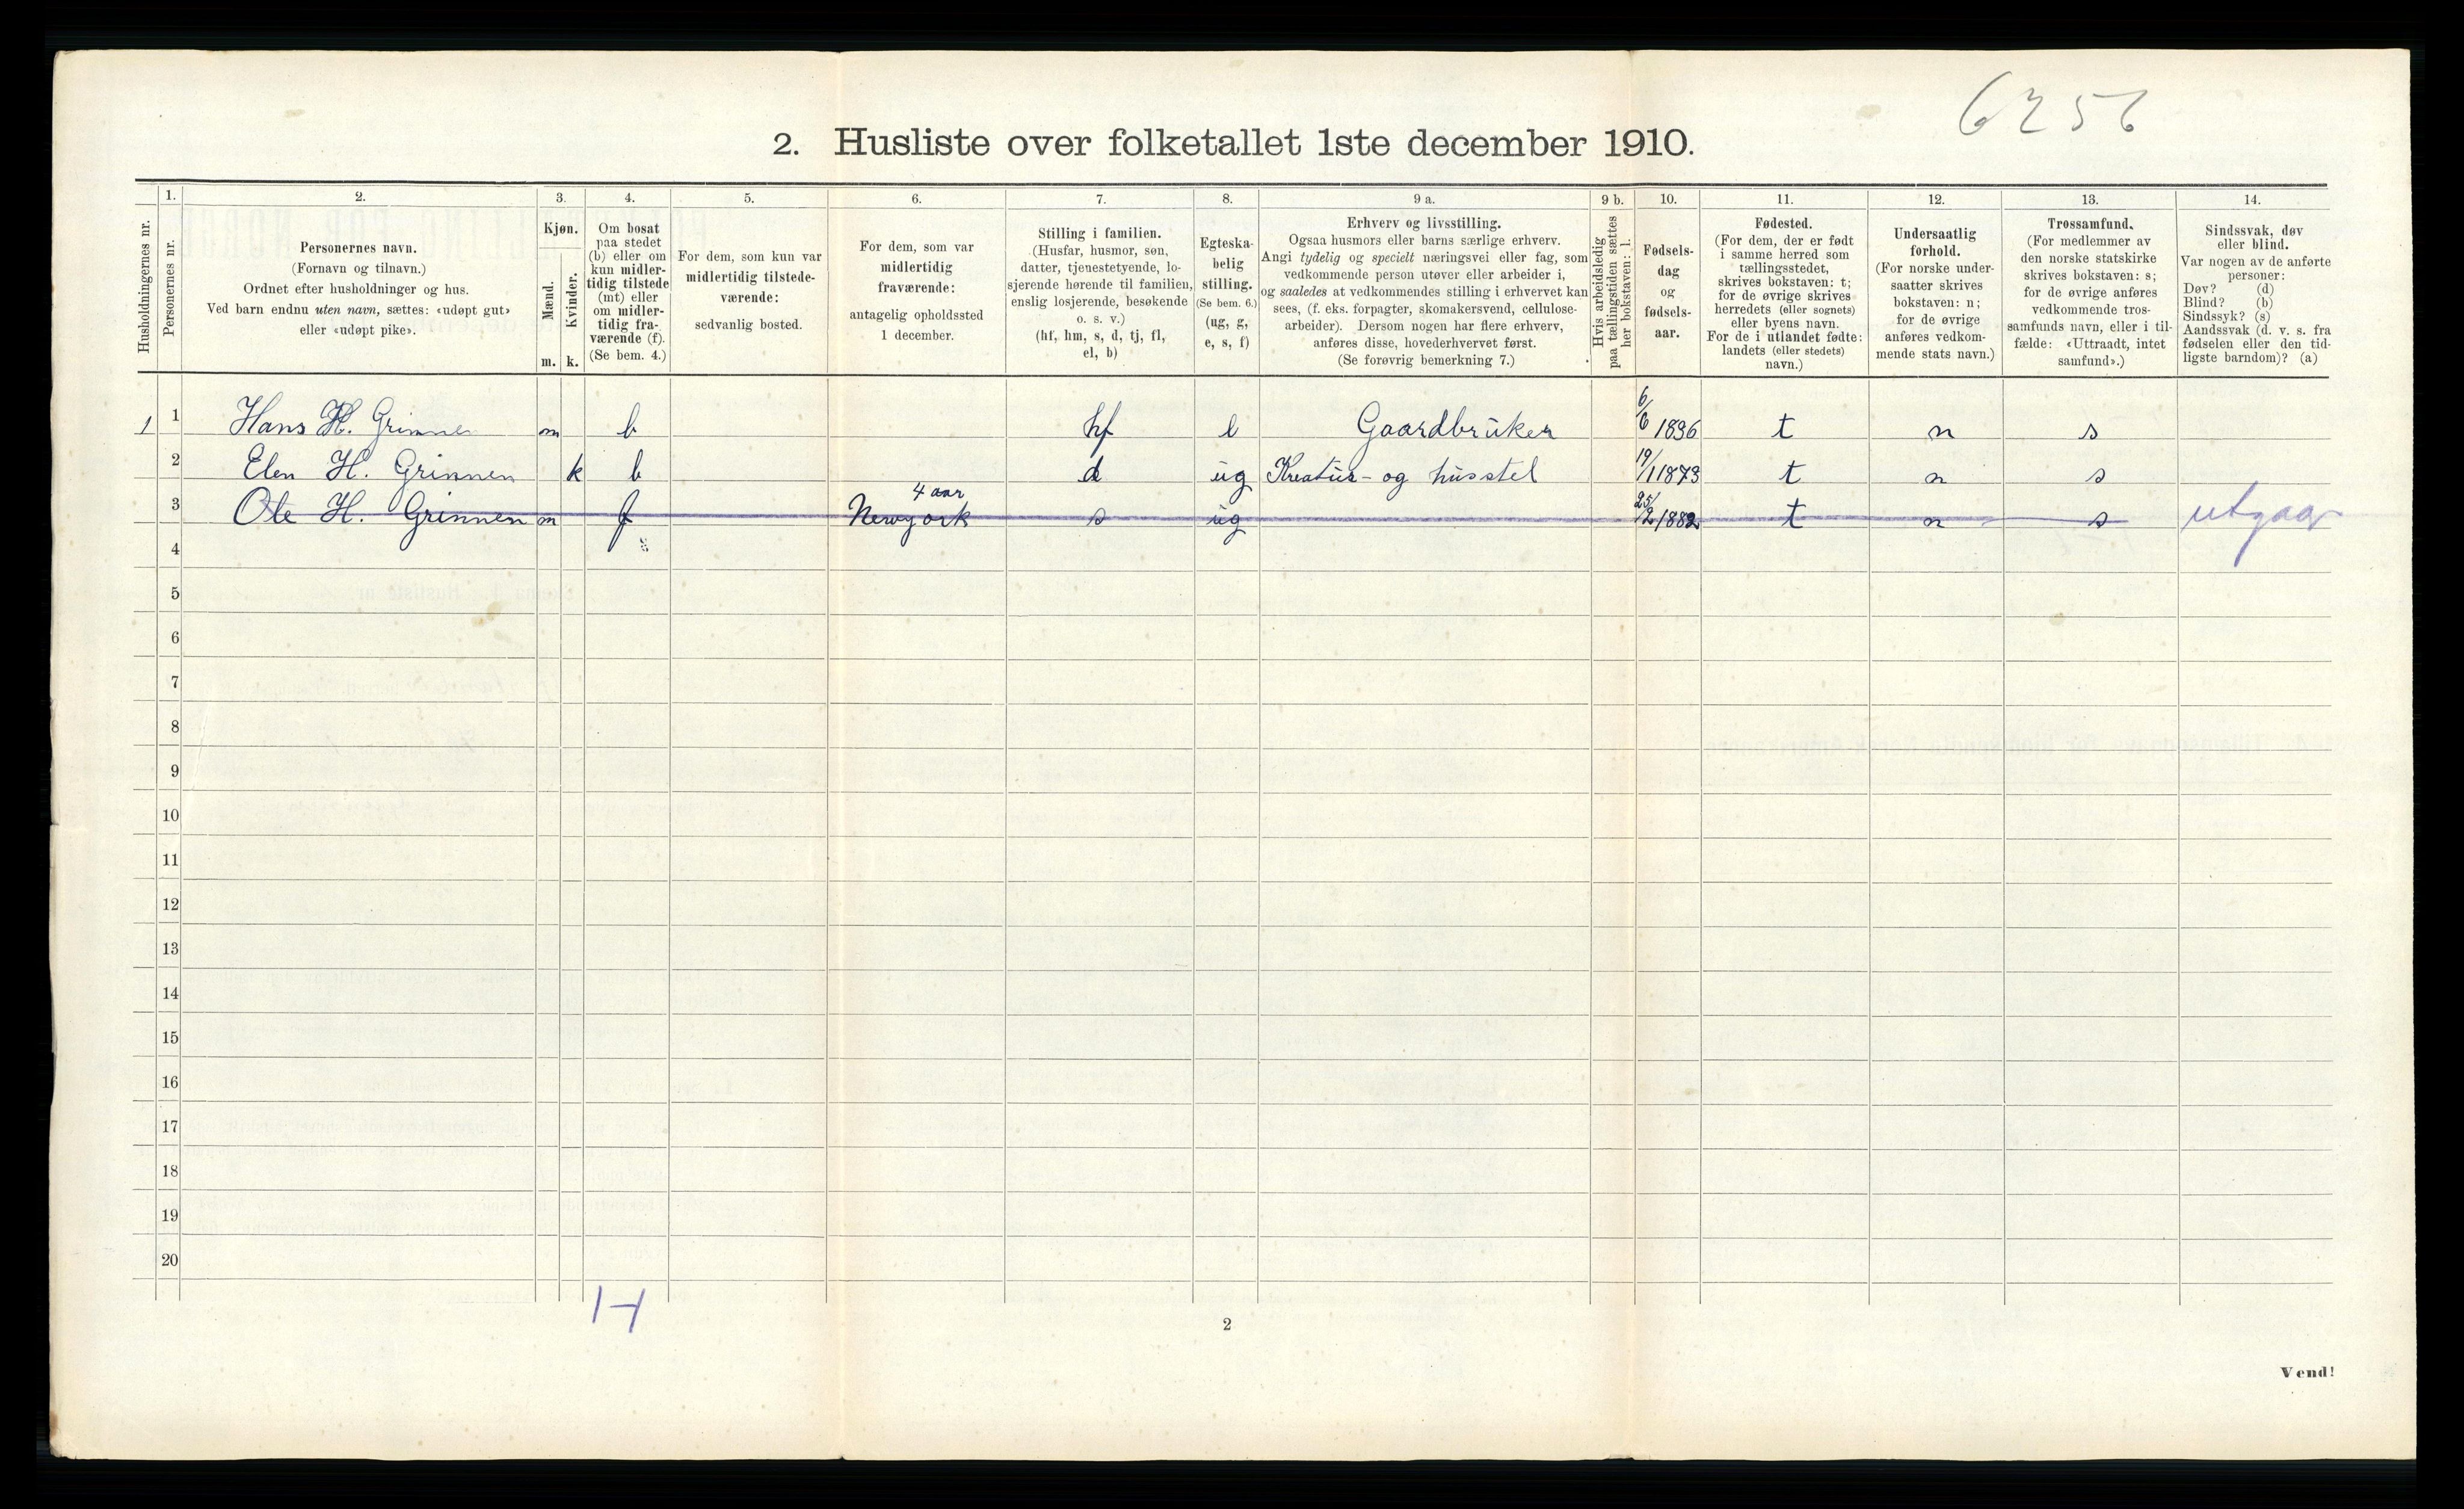 6256
2. Husliste over folketallet 1ste december 1910.
Husholdningernes nr.
1.
Personernes nr.
2.
Personernes navn.
(Fornavn og tilnavn.)
Ordnet efter husholdninger og hus.
Ved barn endnu uten navn, sættes: «udøpt gut»
eller «udøpt pike».
3.
Kjøn.
Mænd.
m.
Kvinder.
k.
4.
Om bosat
paa stedet
(b) eller om
kun midler-
tidig tilstede
(mt) eller
om midler-
tidig fra-
værende (f).
(Se bem. 4.)
5.
For dem, som kun var
midlertidig tilstede-
værende:
sedvanlig bosted.
6.
For dem, som var
midlertidig
fraværende:
antagelig opholdssted
1 december.
7.
Stilling i familien.
(Husfar, husmor, søn,
datter, tjenestetyende, lo-
sjerende hørende til familien,
enslig losjerende, besøkende
o. s. v.)
(hf, hm, s, d, tj, fl,
el, b)
8.
Egteska-
belig
stilling.
(Se bem. 6.)
(ug, g,
e, s, f)
9 a.
Erhverv og livsstilling.
Ogsaa husmors eller barns særlige erhverv.
Angi tydelig og specielt næringsvei eller fag, som
vedkommende person utøver eller arbeider i,
og saaledes at vedkommendes stilling i erhvervet kan
sees, (f. eks. forpagter, skomakersvend, cellulose-
arbeider). Dersom nogen har flere erhverv,
anføres disse, hovederhvervet først.
(Se forøvrig bemerkning 7.)
9 b.
Hvis arbeidsledig
paa tællingstiden sættes
her bokstaven: l.
10.
Fødsels-
dag
og
fødsels-
aar.
11.
Fødested.
(For dem, der er født
i samme herred som
tællingsstedet,
skrives bokstaven: t;
for de øvrige skrives
herredets (eller sognets)
eller byens navn.
For de i utlandet fødte:
landets (eller stedets)
navn.)
12.
Undersaatlig
forhold.
(For norske under-
saatter skrives
bokstaven: n;
for de øvrige
anføres vedkom-
mende stats navn.)
13.
Trossamfund.
(For medlemmer av
den norske statskirke
skrives bokstaven: s;
for de øvrige anføres
vedkommende tros-
samfunds navn, eller i til-
fælde: «Uttraadt, intet
samfund».)
14.
Sindssvak, døv
eller blind.
Var nogen av de anførte
personer:
Døv? (d)
Blind? (b)
Sindssyk? (s)
Aandssvak (d. v. s. fra
fødselen eller den tid-
ligste barndom)? (a)
1 1 Hans H. Grinnen m b hf e Gaardbruker 6/6 1836 t n s
2 Elen H. Grinnen k b d ug Kreatur- og husstel 19/1 1873 t n s
3 Ole H. Grinnen m f 4 aar Newyork s ug 25/2 1882 t n s utgaar
4
5
6
7
8
9
10
11
12
13
14
15
16
17
18
19
20
1-1
2
Vend!